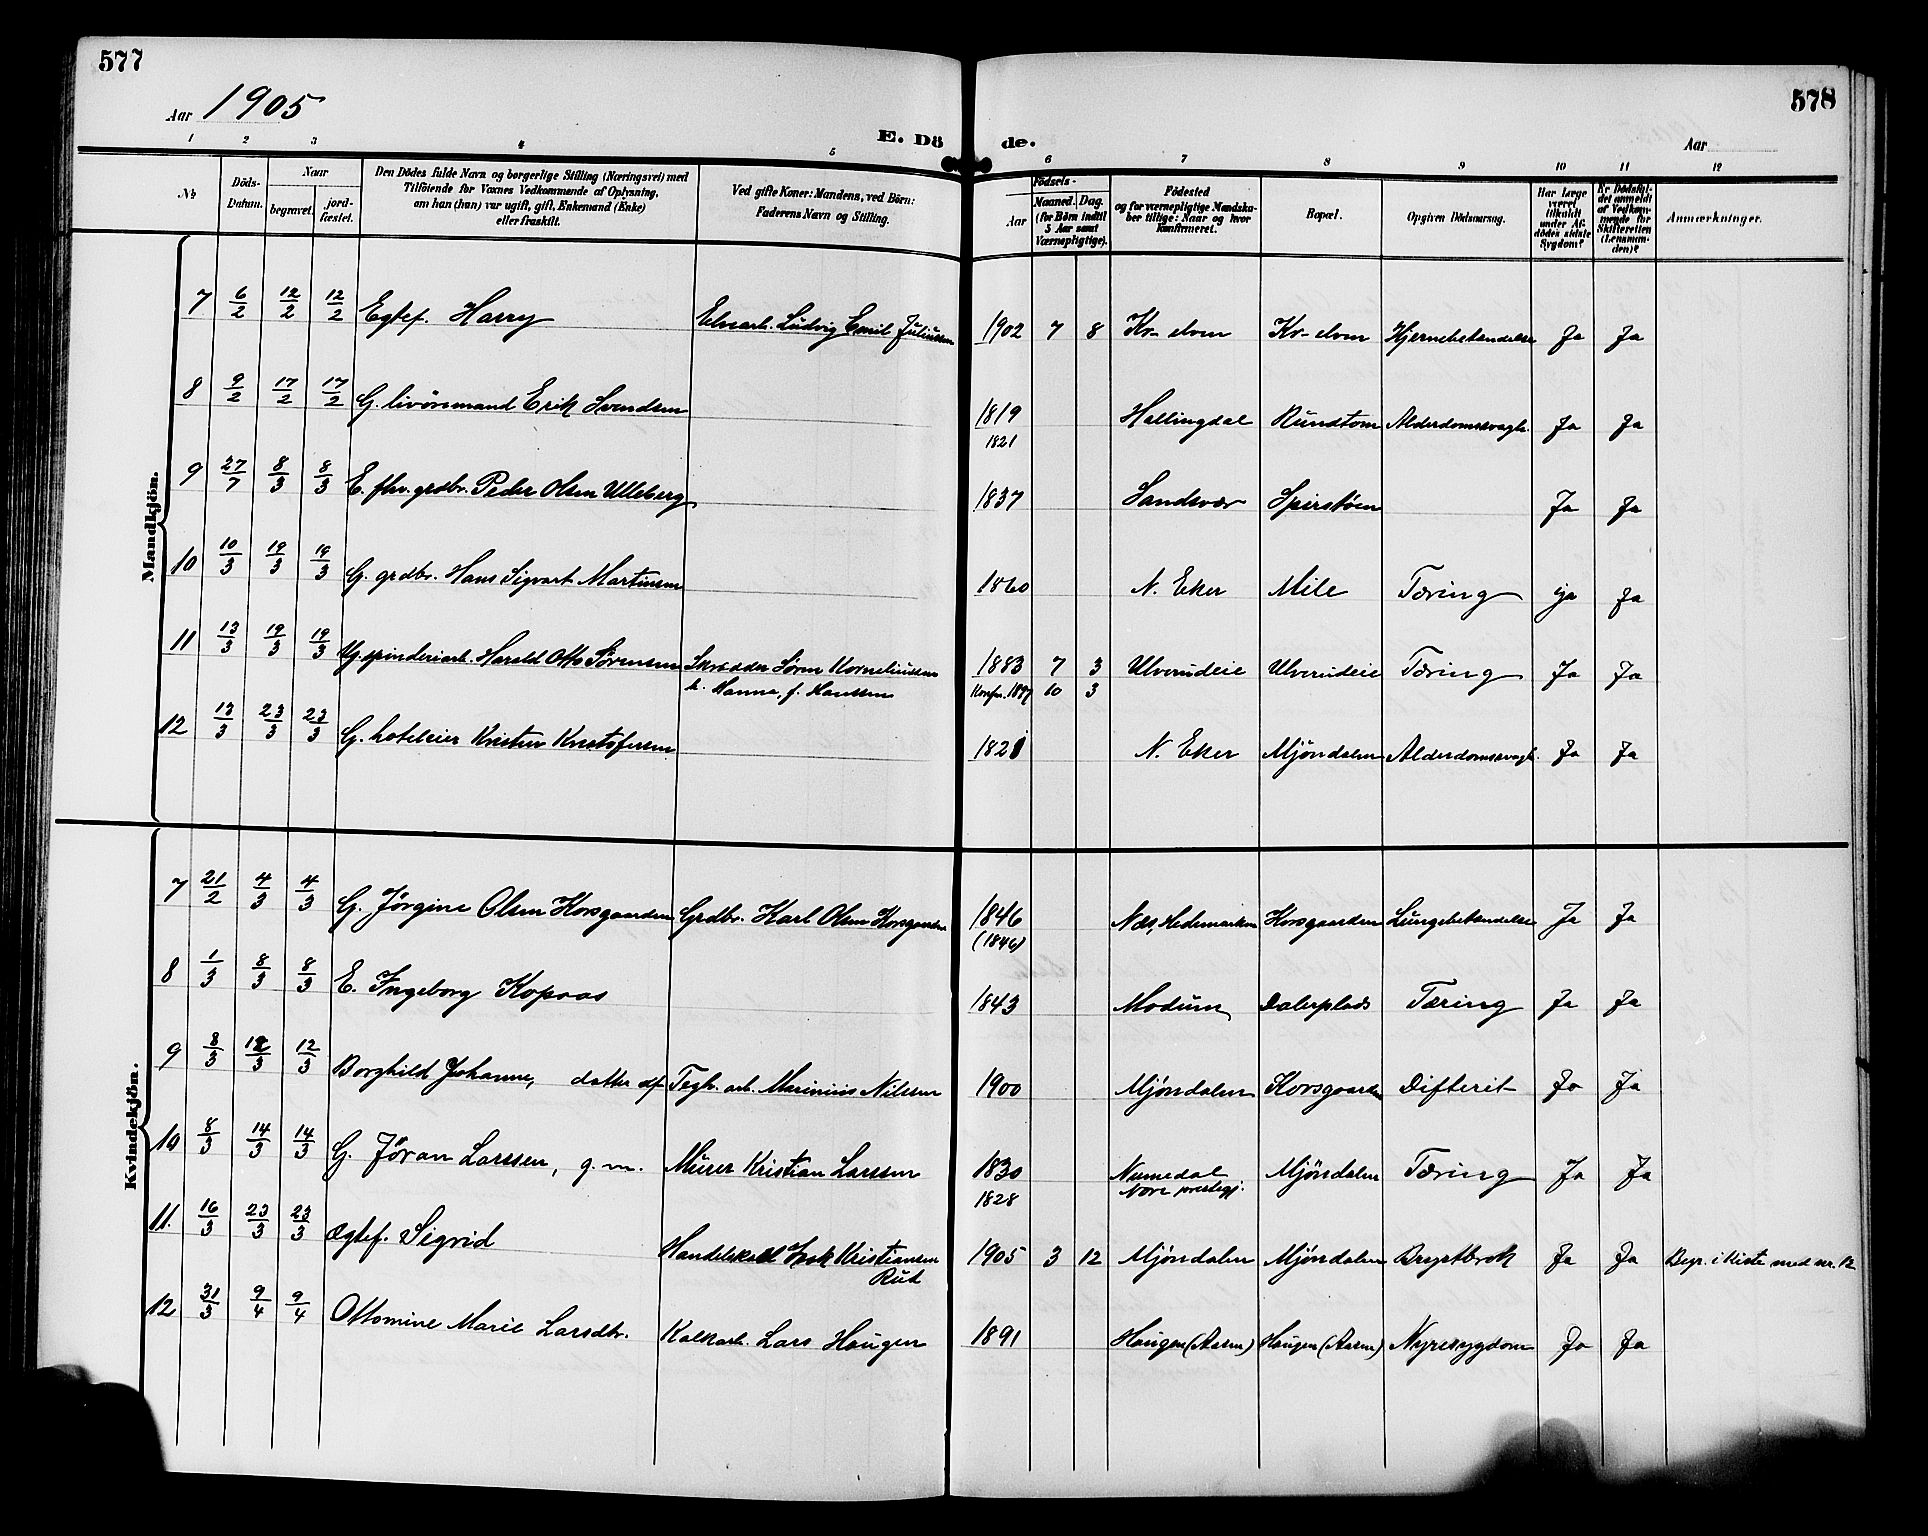 577
578
Aar 1905
Aar
E. Döde.
1 2 3 4 5 6 7 8 9 10 11 12
No
Döds-Datum.
Naar
begravet.
jord-fæstet.
Den Dödes fulde Navn og borgerlige Stilling (Næringsvei) med
Tilföiende for Voxnes Vedkommende af Oplysning,
om han (hun) var ugift, gift, Enkemand (Enke)
eller fraskilt.
Ved gifte Koner: Mandens, ved Börn:
Faderens Navn og Stilling.
Födsels-
Aar
Maaned. Dag.
(for Börn indtil
5 Aar samt
Værnepligtige).
Födested
og for værnepligtige Mandska-
ber tillige: Naar og hvor
Konfirmeret.
Bopæl.
Opgiven Dödsaarsag.
Har læge
været
tilkaldt
under Af-
dödes sidste
Sygdom?
Er Dödsfal-
det anmeldt
af Vedkom-
mende for
Skifteretten
(Lensman-
den)?
Anmærkninger.
Mandkjön.
7 6/2 12/2 12/2 Egtef. Harry Elvearb. Ludvig Emil Juliussen 1902 7 8 Kr- elven Kr- elven Hjernebetændelse Ja Ja
8 9/2 17/2 17/2 G. livöresmand Erik Svendsen 1819 Hallingdal Rundtom Alderdomssvagh. Ja Ja
1821
9 27/7 8/3 8/3 E. fhv. grdbr. Peder Olsen Ulleberg 1837 Sandsvær Spirstøen Ja Ja
10 10/3 19/3 19/3 G. grdbr. Hans Sigvart Martinsen 1860 N. Eker Mile Tæring ja Ja
11 13/3 19/3 19/3 Ug. spinderiarb. Harald Otto Sörensen Skrædder Sören Korneliussen 1883 7 3 Ulverudeie Ulverudeie Tæring Ja Ja
h. Hanna, f. Hanssen Konfr. 1897 10 3
12 13/3 23/3 23/3 G. hoteleier Kristen Kristofersen 1821 N. Eker Mjöndalen Alderdomssvagh. Ja Ja
Kvindekjön.
7 21/2 4/3 4/3 G. Jörgine Olsen Korsgaarden Grdbr. Karl Olsen Korsgaarden 1846 Næs, Hedemarken Korsgaarden Lungebetændelse Ja Ja
(1846)
8 1/3 8/3 8/3 E. Ingeborg Kopaas 1843 Modum Dalerplads Tæring Ja Ja
9 8/3 12/3 12/3 Borghild Johanne, datter af Teglv. arb. Marinius Nilsen 1900 Mjöndalen Korsgaarden Difterit Ja Ja
10 8/3 14/3 14/3 G. Jöran Larssen, g. m. Murer Kristian Larssen 1830 Numedal Mjöndalen Tæring Ja Ja
1828 Nore prestegj.
11. 16/3 23/3 23/3 Ægtef. Sigrid Handelsbetj. Isak Kristiansen 1905 3 12 Mjöndalen Mjöndalen Brystbrok Ja Ja Begr. i kiste med nr. 12
Rud
12 31/3 9/4 9/4 Ottomine Marie Larsdtr. Kalkarb. Lars Haugen 1891 Haugen (Aasen) Haugen (Aasen) Nyresygdom Ja Ja